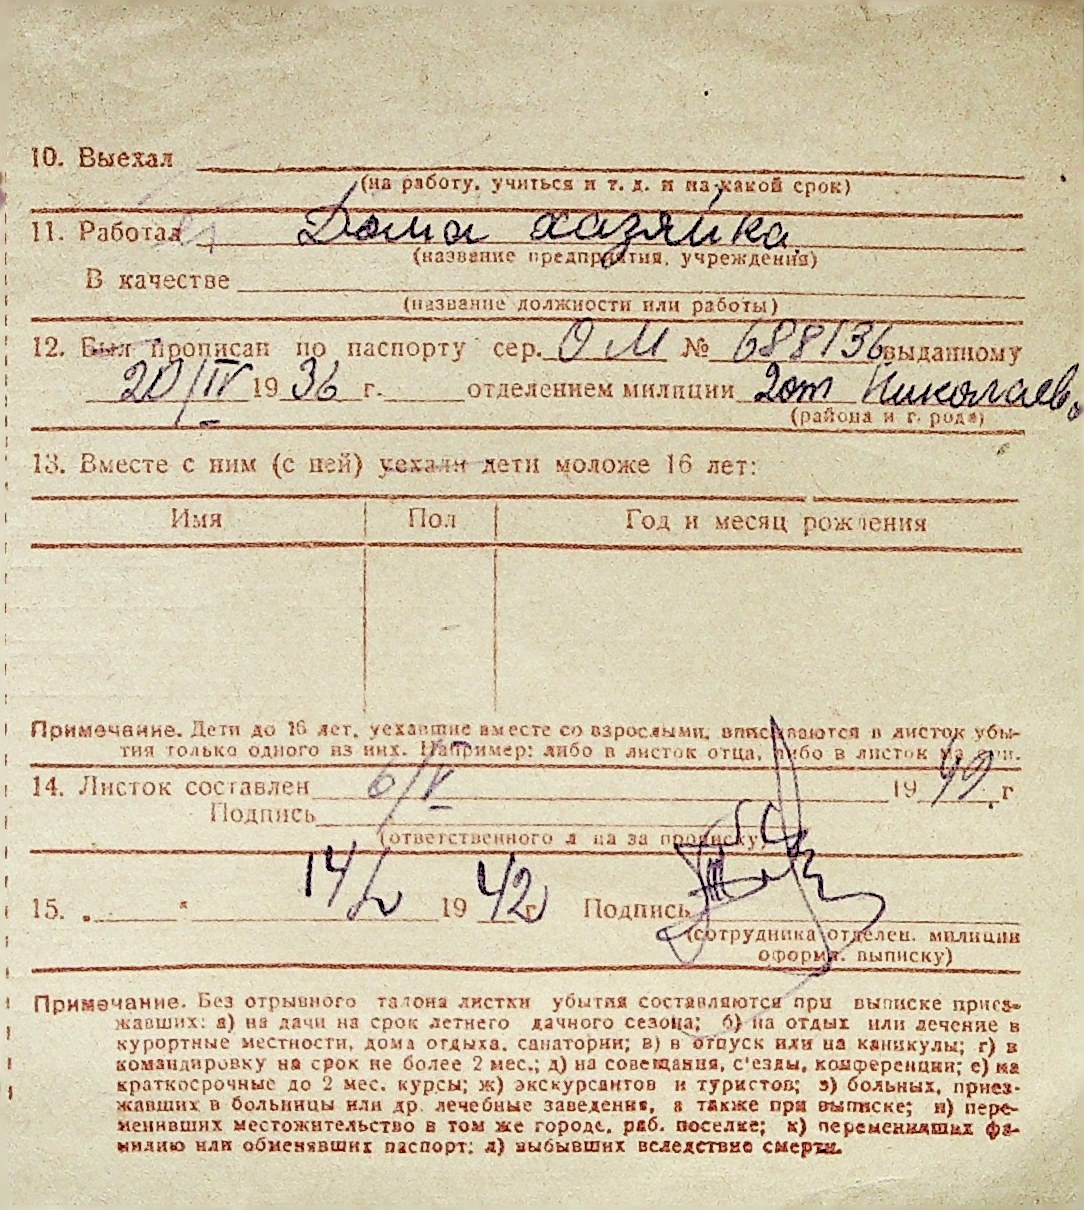 10. Выехал
(на работу, учиться и т. д. и на какой срок)
11. Работал Дома хазяйка
(название предприятия, учреждения)
В качестве
(название должности или работы)
12. Был прописан по паспорту сер. ОМ № 688136 выданному
20/IV 1936 г. отделением милиции 2от Николаев
(района и города)
13. Вместе с ним (с ней) уехали дети моложе 16 лет:
Имя Пол Год и месяц рождения
Примечание. Дети до 16 лет, уехавшие вместе со взрослыми, вписываются в листок убы-
тия только одного из них. Например: либо в листок отца, либо в листок матери.
14. Листок составлен 6/V 19 г
Подпись
(ответственного лица за прописку)
15. „ “ 14/ 1942 г. Подпись
(сотрудника отделен. милиции
оформ. выписку)
Примечание. Без отрывного талона листки убытия составляются при выписке приез-
жавших: а) на дачи на срок летнего дачного сезона; б) на отдых или лечение в
курортные местности, дома отдыха, санатории; в) в отпуск или на каникулы; г) в
командировку на срок не более 2 мес.; д) на совещания, с'езды, конференции; е) на
краткосрочные до 2 мес. курсы; ж) экскурсантов и туристов; з) больных, приез-
жавших в больницы или др. лечебные заведения, а также при выписке; и) пере-
менивших местожительство в том же городе, раб. поселке; к) переменивших фа-
милию или обменявших паспорт; л) выбывших вследствие смерти.